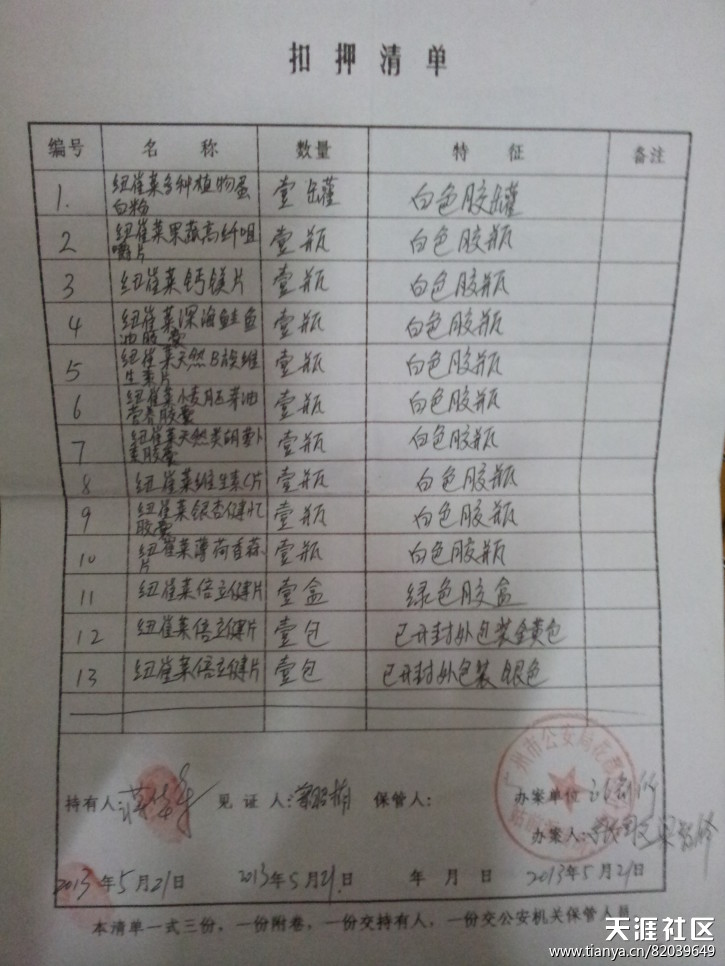 扣押清单
编号 名称 数量 特征 备注
1. 纽崔莱多种植物蛋白粉 壹罐 白色胶罐
2 纽崔莱果蔬高纤咀嚼片 壹瓶 白色胶瓶
3 纽崔莱钙镁片 壹瓶 白色胶瓶
4 纽崔莱深海鲑鱼油胶囊 壹瓶 白色胶瓶
5 纽崔莱天然B族维生素片 壹瓶 白色胶瓶
6 纽崔莱小麦胚芽油营养胶囊 壹瓶 白色胶瓶
7 纽崔莱天然类胡萝卜素胶囊 壹瓶 白色胶瓶
8 纽崔莱维生素C片 壹瓶 白色胶瓶
9 纽崔莱银杏健忆胶囊 壹瓶 白色胶瓶
10 纽崔莱薄荷香蒜片 壹瓶 白色胶瓶
11 纽崔莱倍立健片 壹盒 绿色胶盒
12 纽崔莱倍立健片 壹包 已开封外包装金黄包
13 纽崔莱倍立健片 壹包 已开封外包装银色
广州市公安局花
持有人: 见证人: 保管人: 办案单位
办案人:
2013年5月21日 2013年5月21日 年月日 2013年5月21日
本清单一式三份，一份附卷，一份交持有人，一份交公安机关保管人员
天涯社区
www.tianya.cn/82039649